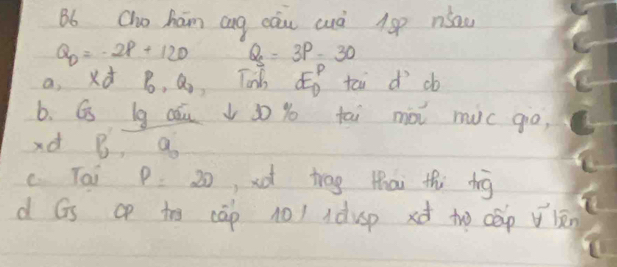 B6 Cho hàm cung cầu của 1sp nsau
Q_D = -2P + 120 Q_S = 3P - 30
a, xđ P₀, Q₀, Tính E_D^P tại đ' cb
b. Gs lg cầu ↓ 30 % tại mỗi mức giá,
xđ P₀, Q₀
c Tại P = 20, xđ trạg thái thị trg
d Gs CP trợ cấp 10 / 1đvsp xđ trợ cấp